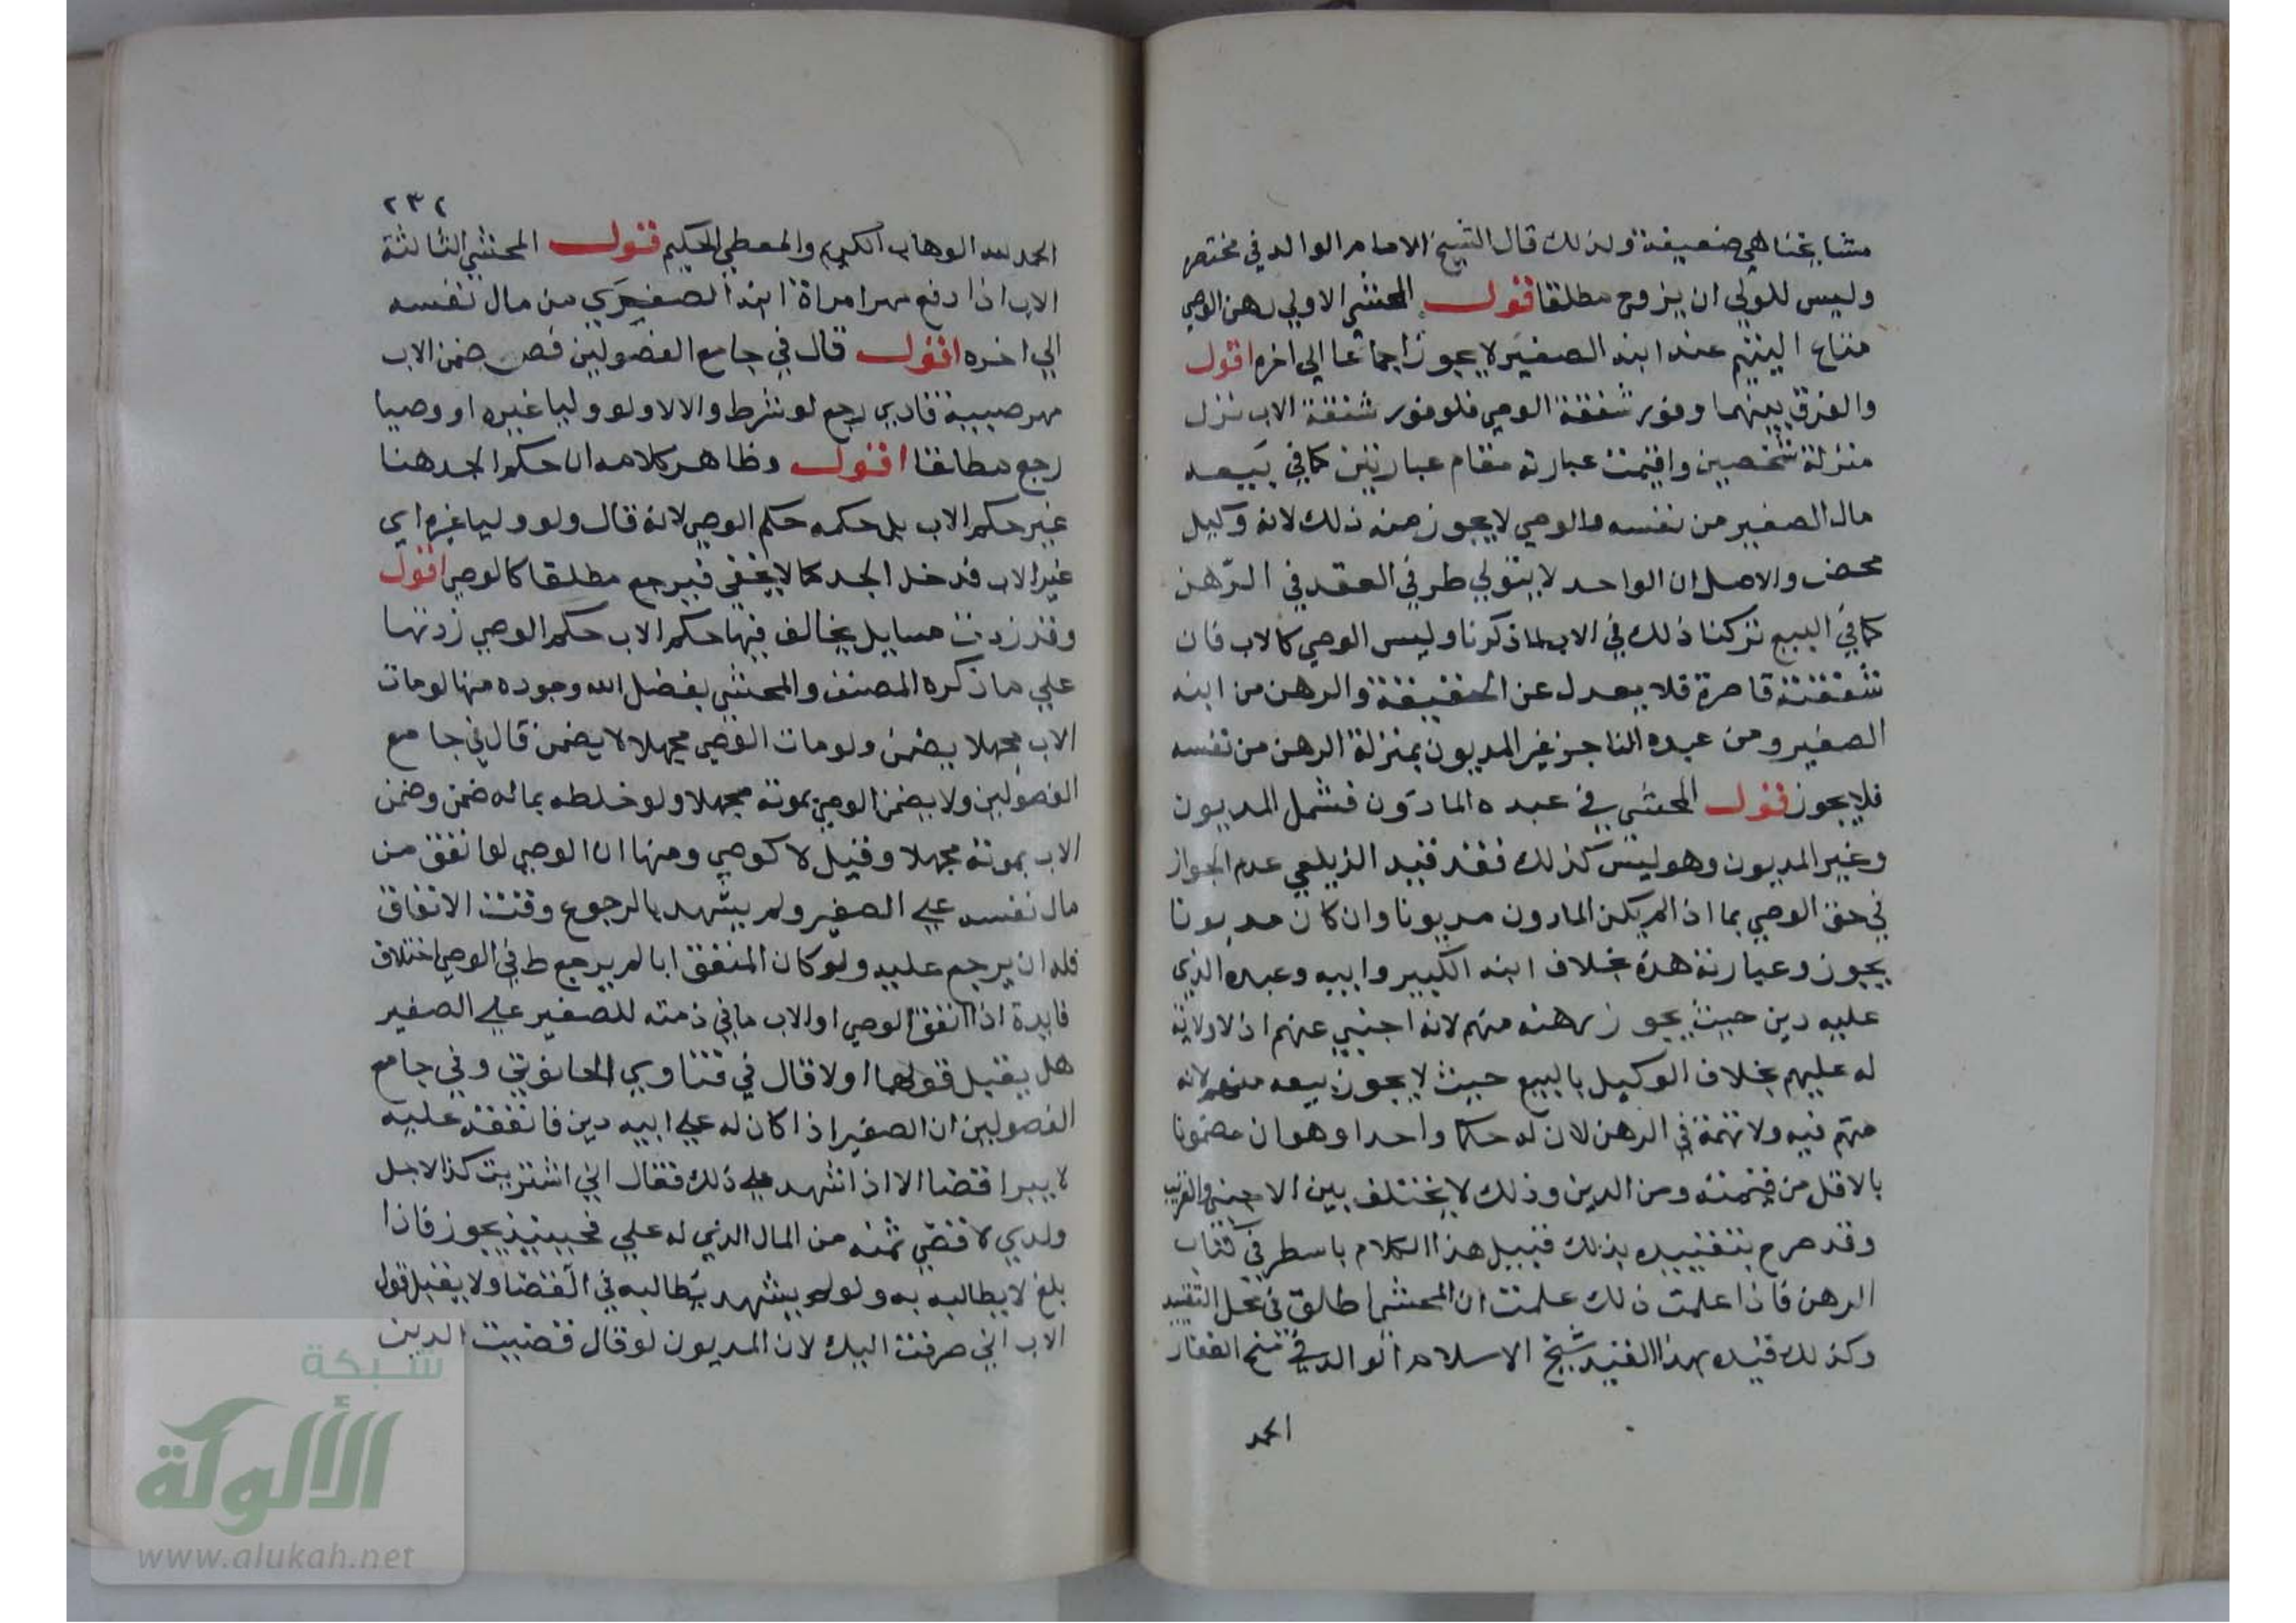 مشايخنا هي ضعيفة ولذلك قال الشيخ الامام الوالد في مختصره
وليس للولي ان يزوج مطلقا قول المحشي الاولي رهن الوصي
متاع اليتيم عند ابنه الصغير لا يجوز اجماعا الي اخره اقول
والفرق بينهما وفور شفقة الوصي فلوفور شفقة الاب نزل
منزلة شخصين واقيمت عبارته مقام عبارتين كما في بيعه
مال الصغير من نفسه والوصي لا يجوز منه ذلك لانه وكيل
محض والاصل ان الواحد لا يتولي طرفي العقد في الرهن
كما في البيع تركنا ذلك في الاب لما ذكرنا وليس الوصي كالاب فان
شفقته قاصرة فلا يعدل عن الحقيقة والرهن من ابنه
الصغير ومن عبده التاجر غير المديون بمنزلة الرهن من نفسه
فلا يجوز قول المحشي في عبده الماذون فشمل المديون
وغير المديون وهو ليس كذلك فقد قيد الزيلعي عدم الجواز
في حق الوصي بما اذا لم يكن الماذون مديونا وان كان مديونا
يجوز وعبارته هذه بخلاف ابنه الكبير وابيه وعبده الذي
عليه دين حيث يجوز رهنه منهم لانه اجنبي عنهم اذ لا ولاية
له عليهم بخلاف الوكيل بالبيع حيث لا يجوز بيعه منهم لانه
متهم فيه ولا تهمة في الرهن لان له حكما واحدا وهو ان مضمونا
بالاقل من قيمته ومن الدين وذلك لا يختلف بين الاجنبي والقريب
وقد صرح بتقييده بذلك قبيل هذا الكلام باسطر في كتاب
الرهن فاذا علمت ذلك علمت ان المحشي اطلق في محل التقييد
وكذلك قيده بهذا القيد شيخ الاسلام الوالد في منح الغفار
الحمد
٢٣٢
الحمد لله الوهاب الكريم والمعطي الحكيم قول المحشي الثالثة
الاب اذا دفع مهر امراة ابنه الصغير من مال نفسه
الي اخره اقول قال في جامع الفصولين فص ضمن الاب
مهر صبيه فادي رجع لو شرط والا لا ولو وليا غيره او وصيا
رجع مطلقا اقول وظاهر كلامه ان حكم الجد هنا
غير حكم الاب بل حكمه حكم الوصي لانه قال ولو وليا غيره اي
غير الاب فدخل الجد كما لا يخفي فيرجع مطلقا كالوصي اقول
وقد زدت مسايل يخالف فيها حكم الاب حكم الوصي زدتها
علي ما ذكره المصنف والمحشي بفضل الله وجوده منها لو مات
الاب مجهلا يضمن ولو مات الوصي مجهلا لا يضمن قال في جامع
الفصولين ولا يضمن الوصي بموته مجهلا ولو خلطه بماله ضمن وضمن
الاب بموته مجهلا وقيل لا كوصي ومنها ان الوصي لو انفق من
مال نفسه علي الصغير ولم يشهد بالرجوع وقت الانفاق
فله ان يرجع عليه ولو كان المنفق ابا لم يرجع ط في الوصي اختلاف
فايدة اذا انفق الوصي او الاب ما في ذمته للصغير علي الصغير
هل يقبل قولهما او لا قال في فتاوي الحانوتي وفي جامع
الفصولين ان الصغير اذا كان له علي ابيه دين فانفقه عليه
لا يبرا قضا الا اذا اشهد علي ذلك فقال اني اشتريت كذا لاجل
ولدي لاقضي ثمنه من المال الذي له علي فحينيذ يجوز فاذا
بلغ لا يطالبه به ولو لم يشهد يطالبه في القضا ولا يقبل قول
الاب اني صرفت اليك لان المديون لو قال قضيت الدين
شبكة
الألوكة
www.alukah.net